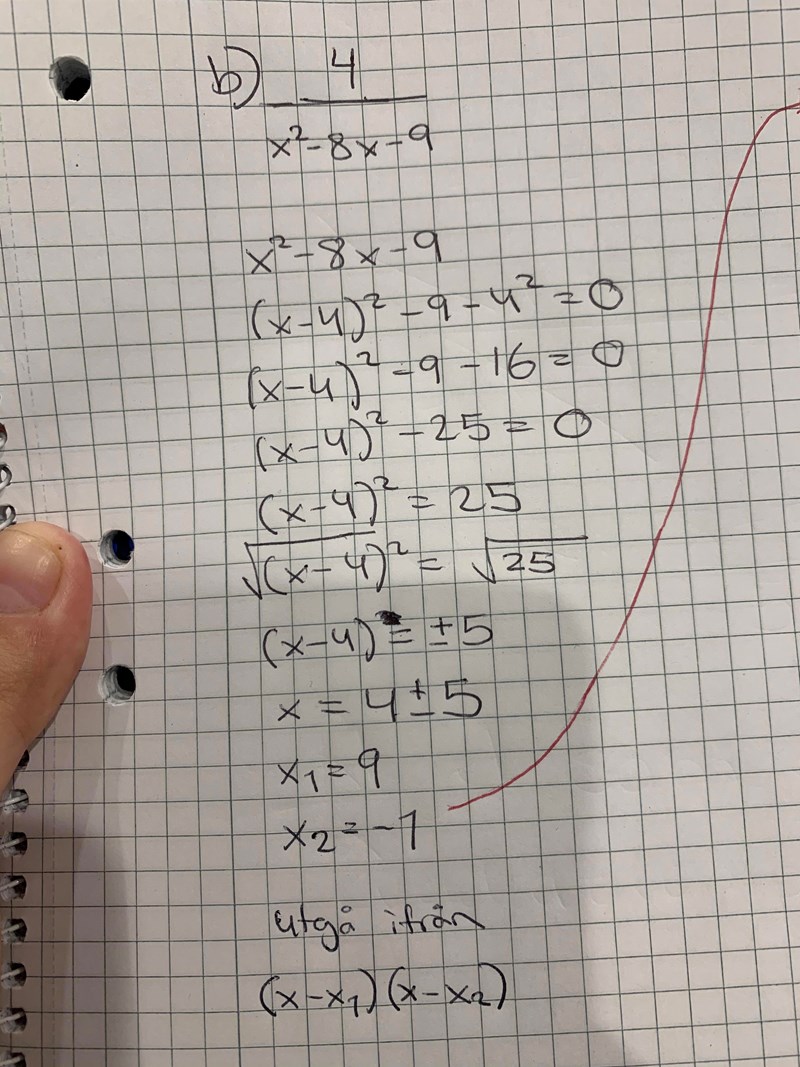 b) 4
x²-8x-9
x²-8x-9
(x-4)²-9-4²=0
(x-4)²-9-16=0
(x-4)²-25=0
(x-4)²=25
√(x-4)²=√25
(x-4)=±5
x=4±5
x₁=9
x₂=-1
utgå ifrån
(x-x₁)(x-x₂)